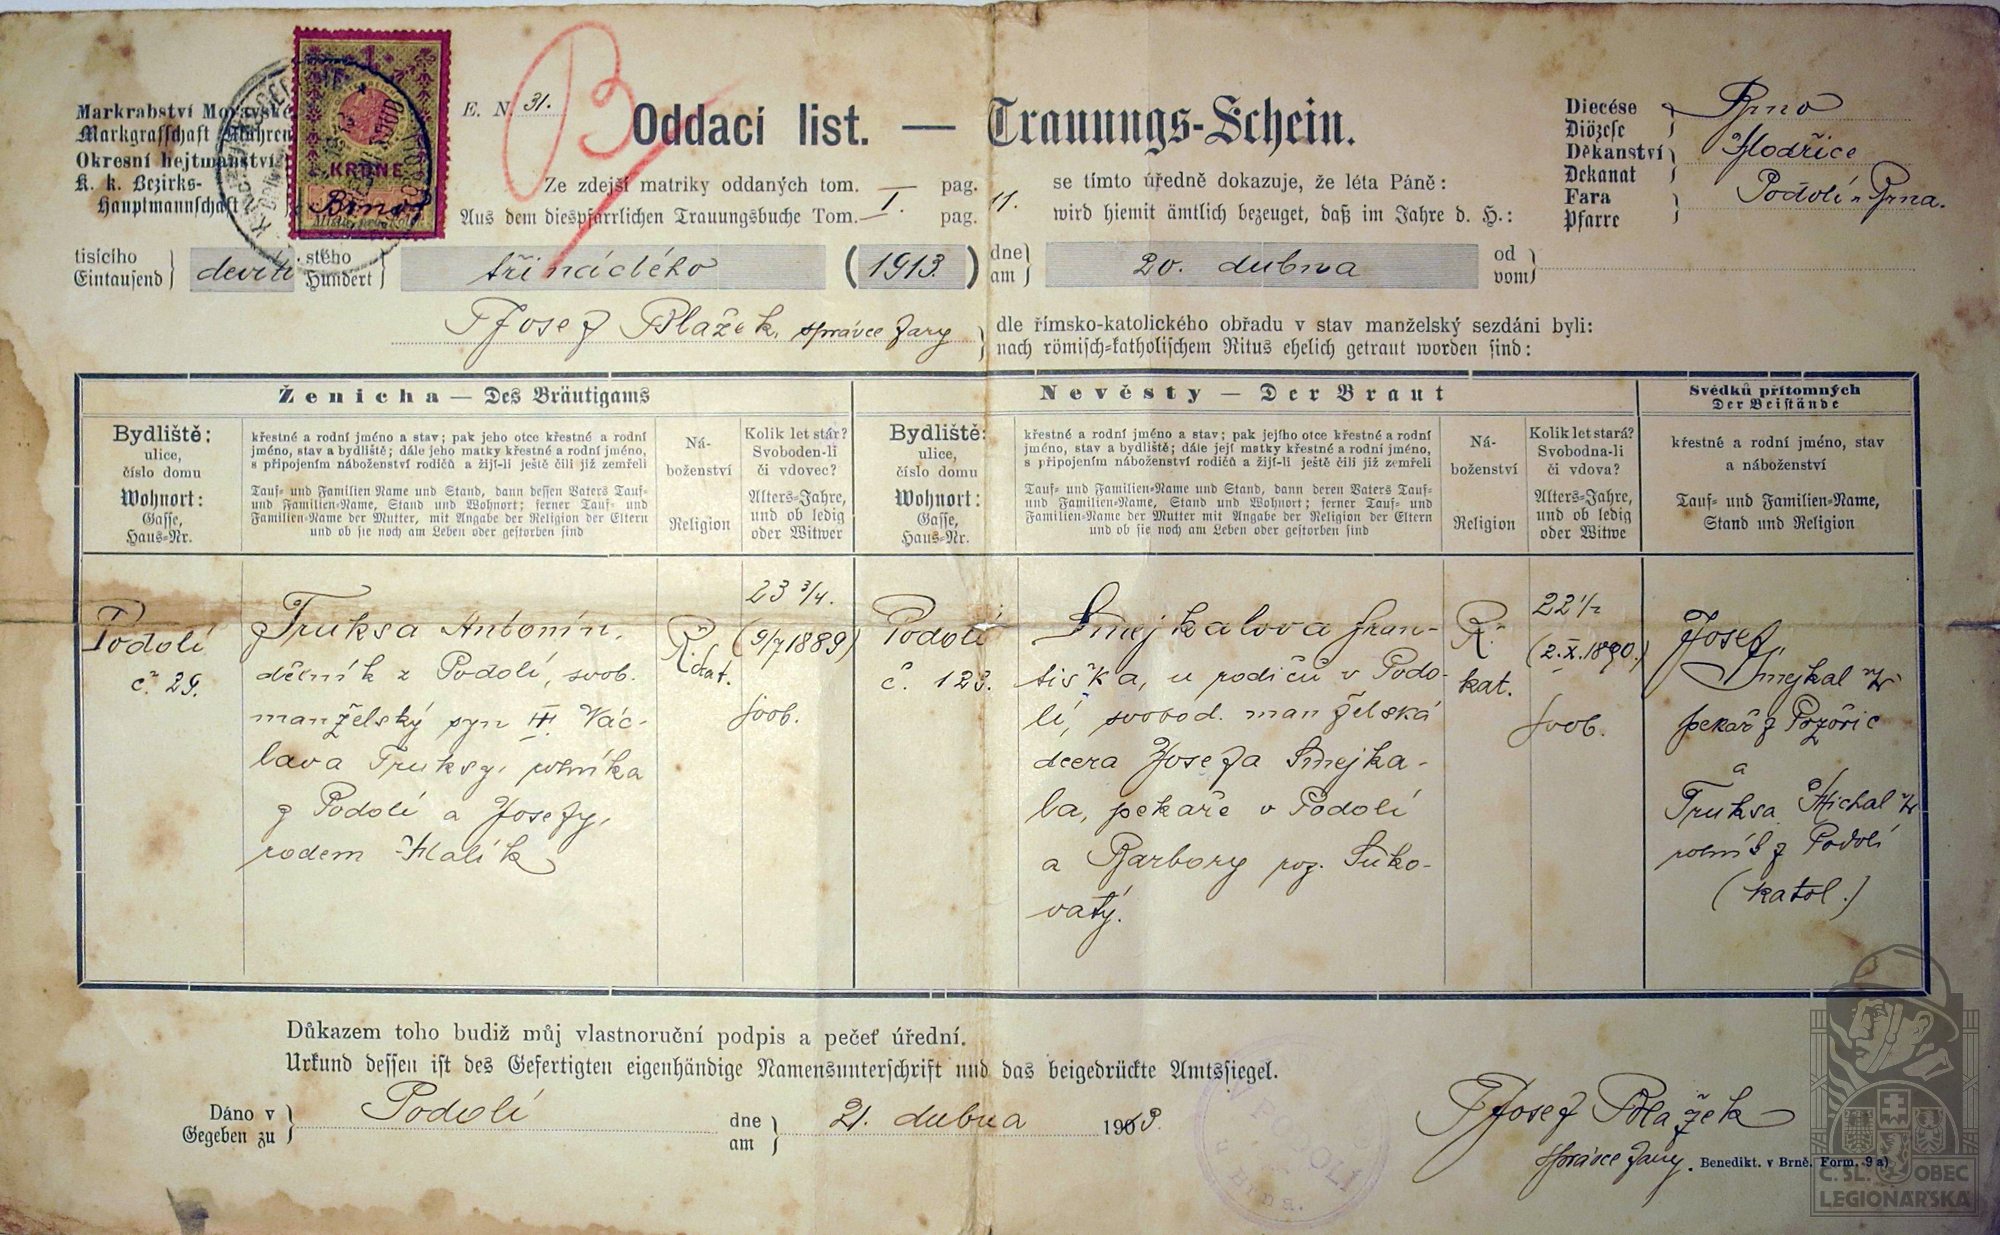 Markrabství Moravské
Markgrafschaft Mähren
Okresní hejtmanství
K. k. Bezirks-
Hauptmannschaft
1
KRONE
Brno
E. N. 31.
B
Oddací list. — Trauungs-Schein.
Diecése
Diözese
Brno
Děkanství
Dekanat
Modřice
Fara
Pfarre
Podolí u Brna.
Ze zdejší matriky oddaných tom. — pag.
Aus dem diespfarrlichen Trauungsbuche Tom. I. pag. 11.
se tímto úředně dokazuje, že léta Páně:
wird hiemit ämtlich bezeuget, daß im Jahre d. H.:
tisícího
Eintausend
devíti
stého
Hundert
třináctého
(1913.)
dne
am
20. dubna
od
vom
P Josef Blažek, správce fary
dle římsko-katolického obřadu v stav manželský sezdáni byli:
nach römisch-katholischem Ritus ehelich getraut worden sind:
Ženicha — Des Bräutigams
Nevěsty — Der Braut
Svědků přítomných
Der Beistände
Bydliště:
ulice,
číslo domu
Wohnort:
Gasse,
Haus-Nr.
křestné a rodní jméno a stav; pak jeho otce křestné a rodní
jméno, stav a bydliště; dále jeho matky křestné a rodní jméno,
s připojením náboženství rodičů a žijí-li ještě čili již zemřeli
Tauf- und Familien Name und Stand, dann dessen Vaters Tauf-
und Familien-Name, Stand und Wohnort; ferner Tauf- und
Familien-Name der Mutter, mit Angabe der Religion der Eltern
und ob sie noch am Leben oder gestorben sind
Ná-
boženství
Religion
Kolik let stár?
Svoboden-li
či vdovec?
Alters-Jahre,
und ob ledig
oder Witwer
Bydliště:
ulice,
číslo domu
Wohnort:
Gasse,
Haus-Nr.
křestné a rodní jméno a stav; pak jejího otce křestné a rodní
jméno, stav a bydliště; dále její matky křestné a rodní jméno,
s připojením náboženství rodičů a žijí-li ještě čili již zemřeli
Tauf- und Familien-Name und Stand, dann deren Vaters Tauf-
und Familien-Name, Stand und Wohnort; ferner Tauf- und
Familien-Name der Mutter mit Angabe der Religion der Eltern
und ob sie noch am Leben oder gestorben sind
Ná-
boženství
Religion
Kolik let stará?
Svobodna-li
či vdova?
Alters-Jahre,
und ob ledig
oder Witwe
křestné a rodní jméno, stav
a náboženství
Tauf- und Familien-Name,
Stand und Religion
Podolí
č. 29.
Truksa Antonín,
dělník z Podolí, svob.
manželský syn
Vác-
lava Truksy, rolníka
z Podolí a Josefy,
rodem Malík
Ř.
kat.
23 3/4.
(9/7 1889)
svob.
Podolí
č. 123.
Smejkalova Fran-
tiška, u rodičů v Podo-
lí, svobod. manželská
dcera Josefa Smejka-
la, pekaře v Podolí
a Barbory roz. Suko-
vatý.
Ř.
kat.
22 1/2
(2. X. 1890.)
svob.
Josef
Smejkal
pekař z Pozořic
a
Truksa Michal
rolník z Podolí
(katol.)
Důkazem toho budiž můj vlastnoruční podpis a pečeť úřední.
Urkund dessen ist des Gefertigten eigenhändige Namensunterschrift und das beigedrückte Amtssiegel.
Dáno v
Gegeben zu
Podolí
dne
am
21. dubna 1913.
V PODOLÍ
u Brna.
P Josef Blažek
správce fary.
Benedikt. v Brně. Form. 9 a)
Č. SL. OBEC
LEGIONÁŘSKÁ